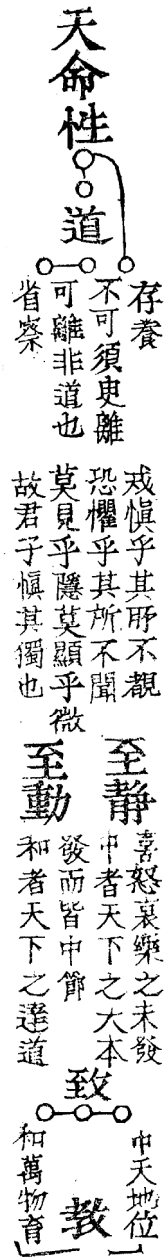 天命性
道
存養
不可須臾離
可離非道也
省察
戒愼乎其所不覩
恐懼乎其所不聞
莫見乎隱莫顯乎微
故君子愼其獨也
至靜
至動
喜怒哀樂之未發
中者天下之大本
發而皆中節
和者天下之達道
致
中天地位
教
和萬物育